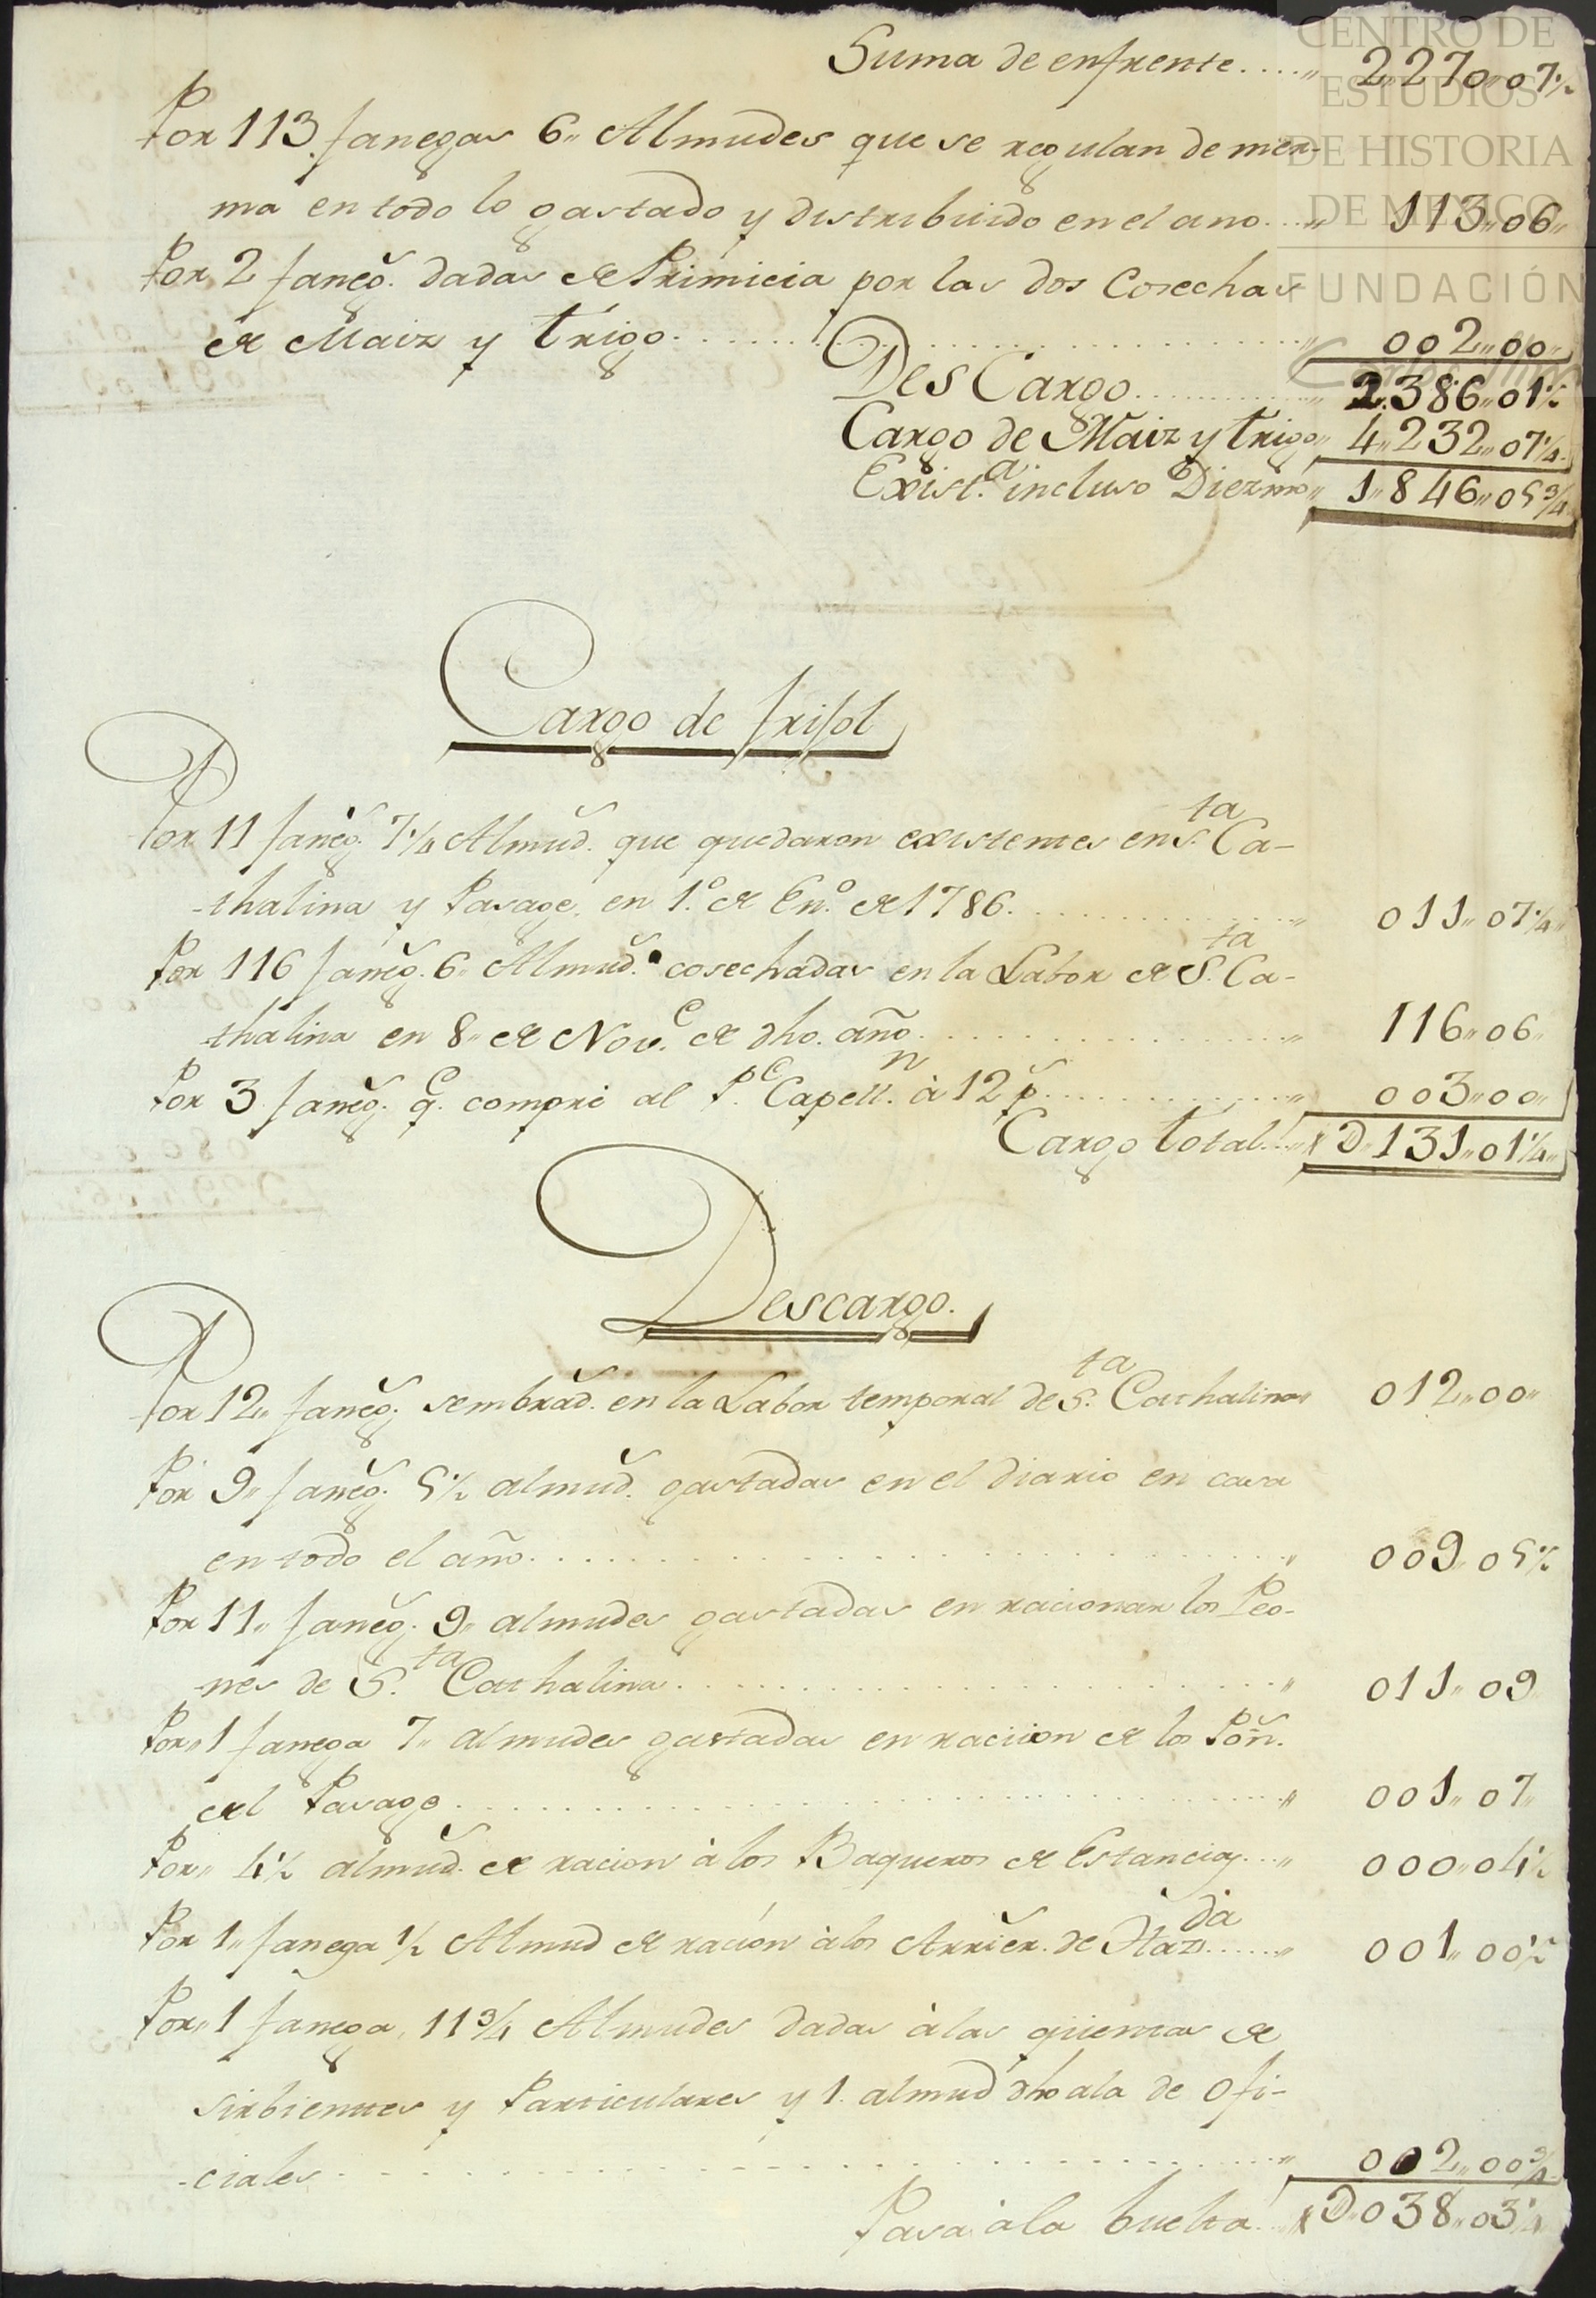 CENTRO DE
ESTUDIOS
DE HISTORIA
DE MEXICO
FUNDACIÓN
Suma de enfrente....,, 2,,270,,07½
Por 113 fanegas 6,, Almudes que se regulan de mer-
ma en todo lo gastado y distribuido en el ano...,, 113,,06,,
Por 2 faneg. dadas de Primicia por las dos Cosechas
de Maiz y trigo..........,, 002,,00,,
DesCargo..........,, 2.386,,01½
Cargo de Maiz y trigo,, 4,,232,,07¼
Exist.a incluso Diezmo,, 1,,846,,05¾
Cargo de frisol
Por 11 faneg. 7¼ Almud. que quedaron existentes en S.ta Ca-
-thalina y Pasage, en 1.o de En.o de 1786..........,, 011,,07¼,,
Por 116 faneg. 6,, Almud. cosechadas en la Labor de S.ta Ca-
thalina en 8,, de Nov.e de dho. año..........,, 116,,06,,
Por 3 faneg. q.e compré al P.e Capell.n à 12 p..........,, 003,,00,,
Cargo total...,, D,,131,,01¼,,
Descargo.
Por 12,, faneg. sembrad. en la Labor temporal de S.ta Cathalina,, 012,,00,,
Por 9,, faneg. 5½ almud. gastadas en el diario en casa
en todo el año..........,, 009,,05½
Por 11,, faneg. 9,, almudes gastadas en racionar los Peo-
-nes de S.ta Cathalina..........,, 011,,09
Por,, 1 fanega 7,, almudes gastadas en racion de los Pon.
del Pasage..........,, 001,,07,,
Por,, 4½ almud. de racion à los Baqueros de Estancia...,, 000,,04½
Por 1,, fanega ½ Almud de ración à los Arrier. de Haz.da......,, 001,,00½
Por,, 1 fanega, 11¾ Almudes dadas à las quentas de
sirbientes y Particulares y 1. almud dho ala de Ofi-
-ciales..........,, 002,,00¾
Pasa à la buelta...,, D,,038,,03¼